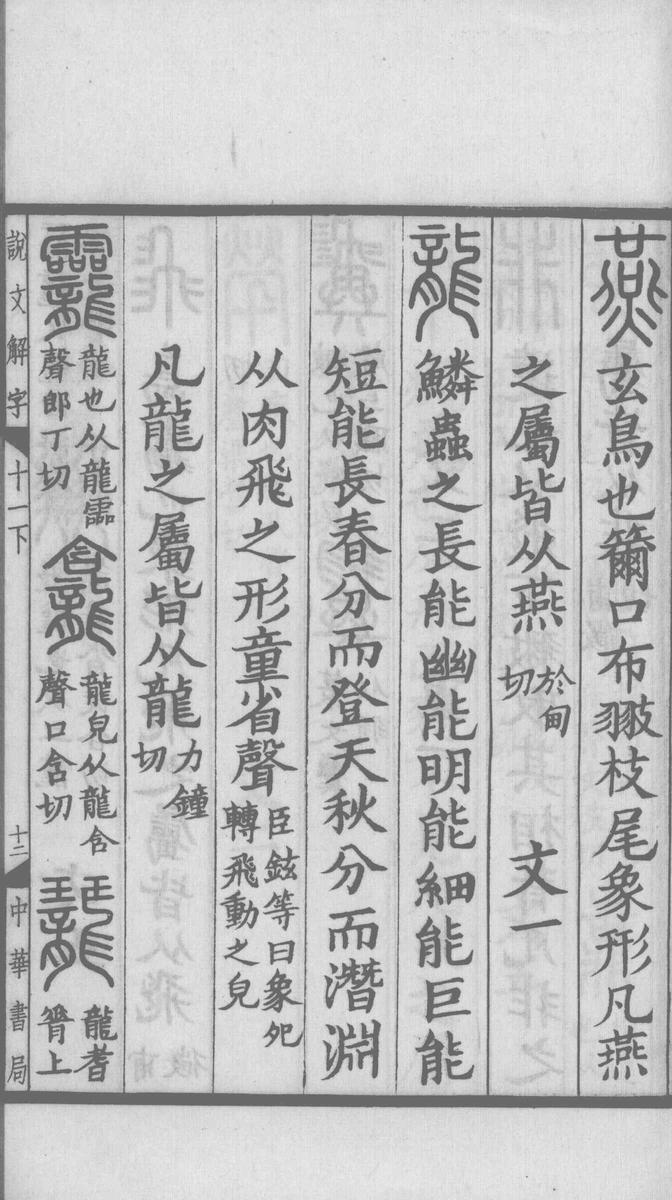 燕玄鳥也籋口布翄枝尾象形凡燕
之屬皆从燕於甸切 文一
龍鱗蟲之長能幽能明能細能巨能
短能長春分而登天秋分而潛淵
从肉飛之形童省聲臣鉉等曰象夗轉飛動之皃
凡龍之屬皆从龍力鐘切
龗龍也从龍霝聲郎丁切 龕龍皃从龍合聲口含切 龖龍耆脊上
說文解字十一下 十二 中華書局